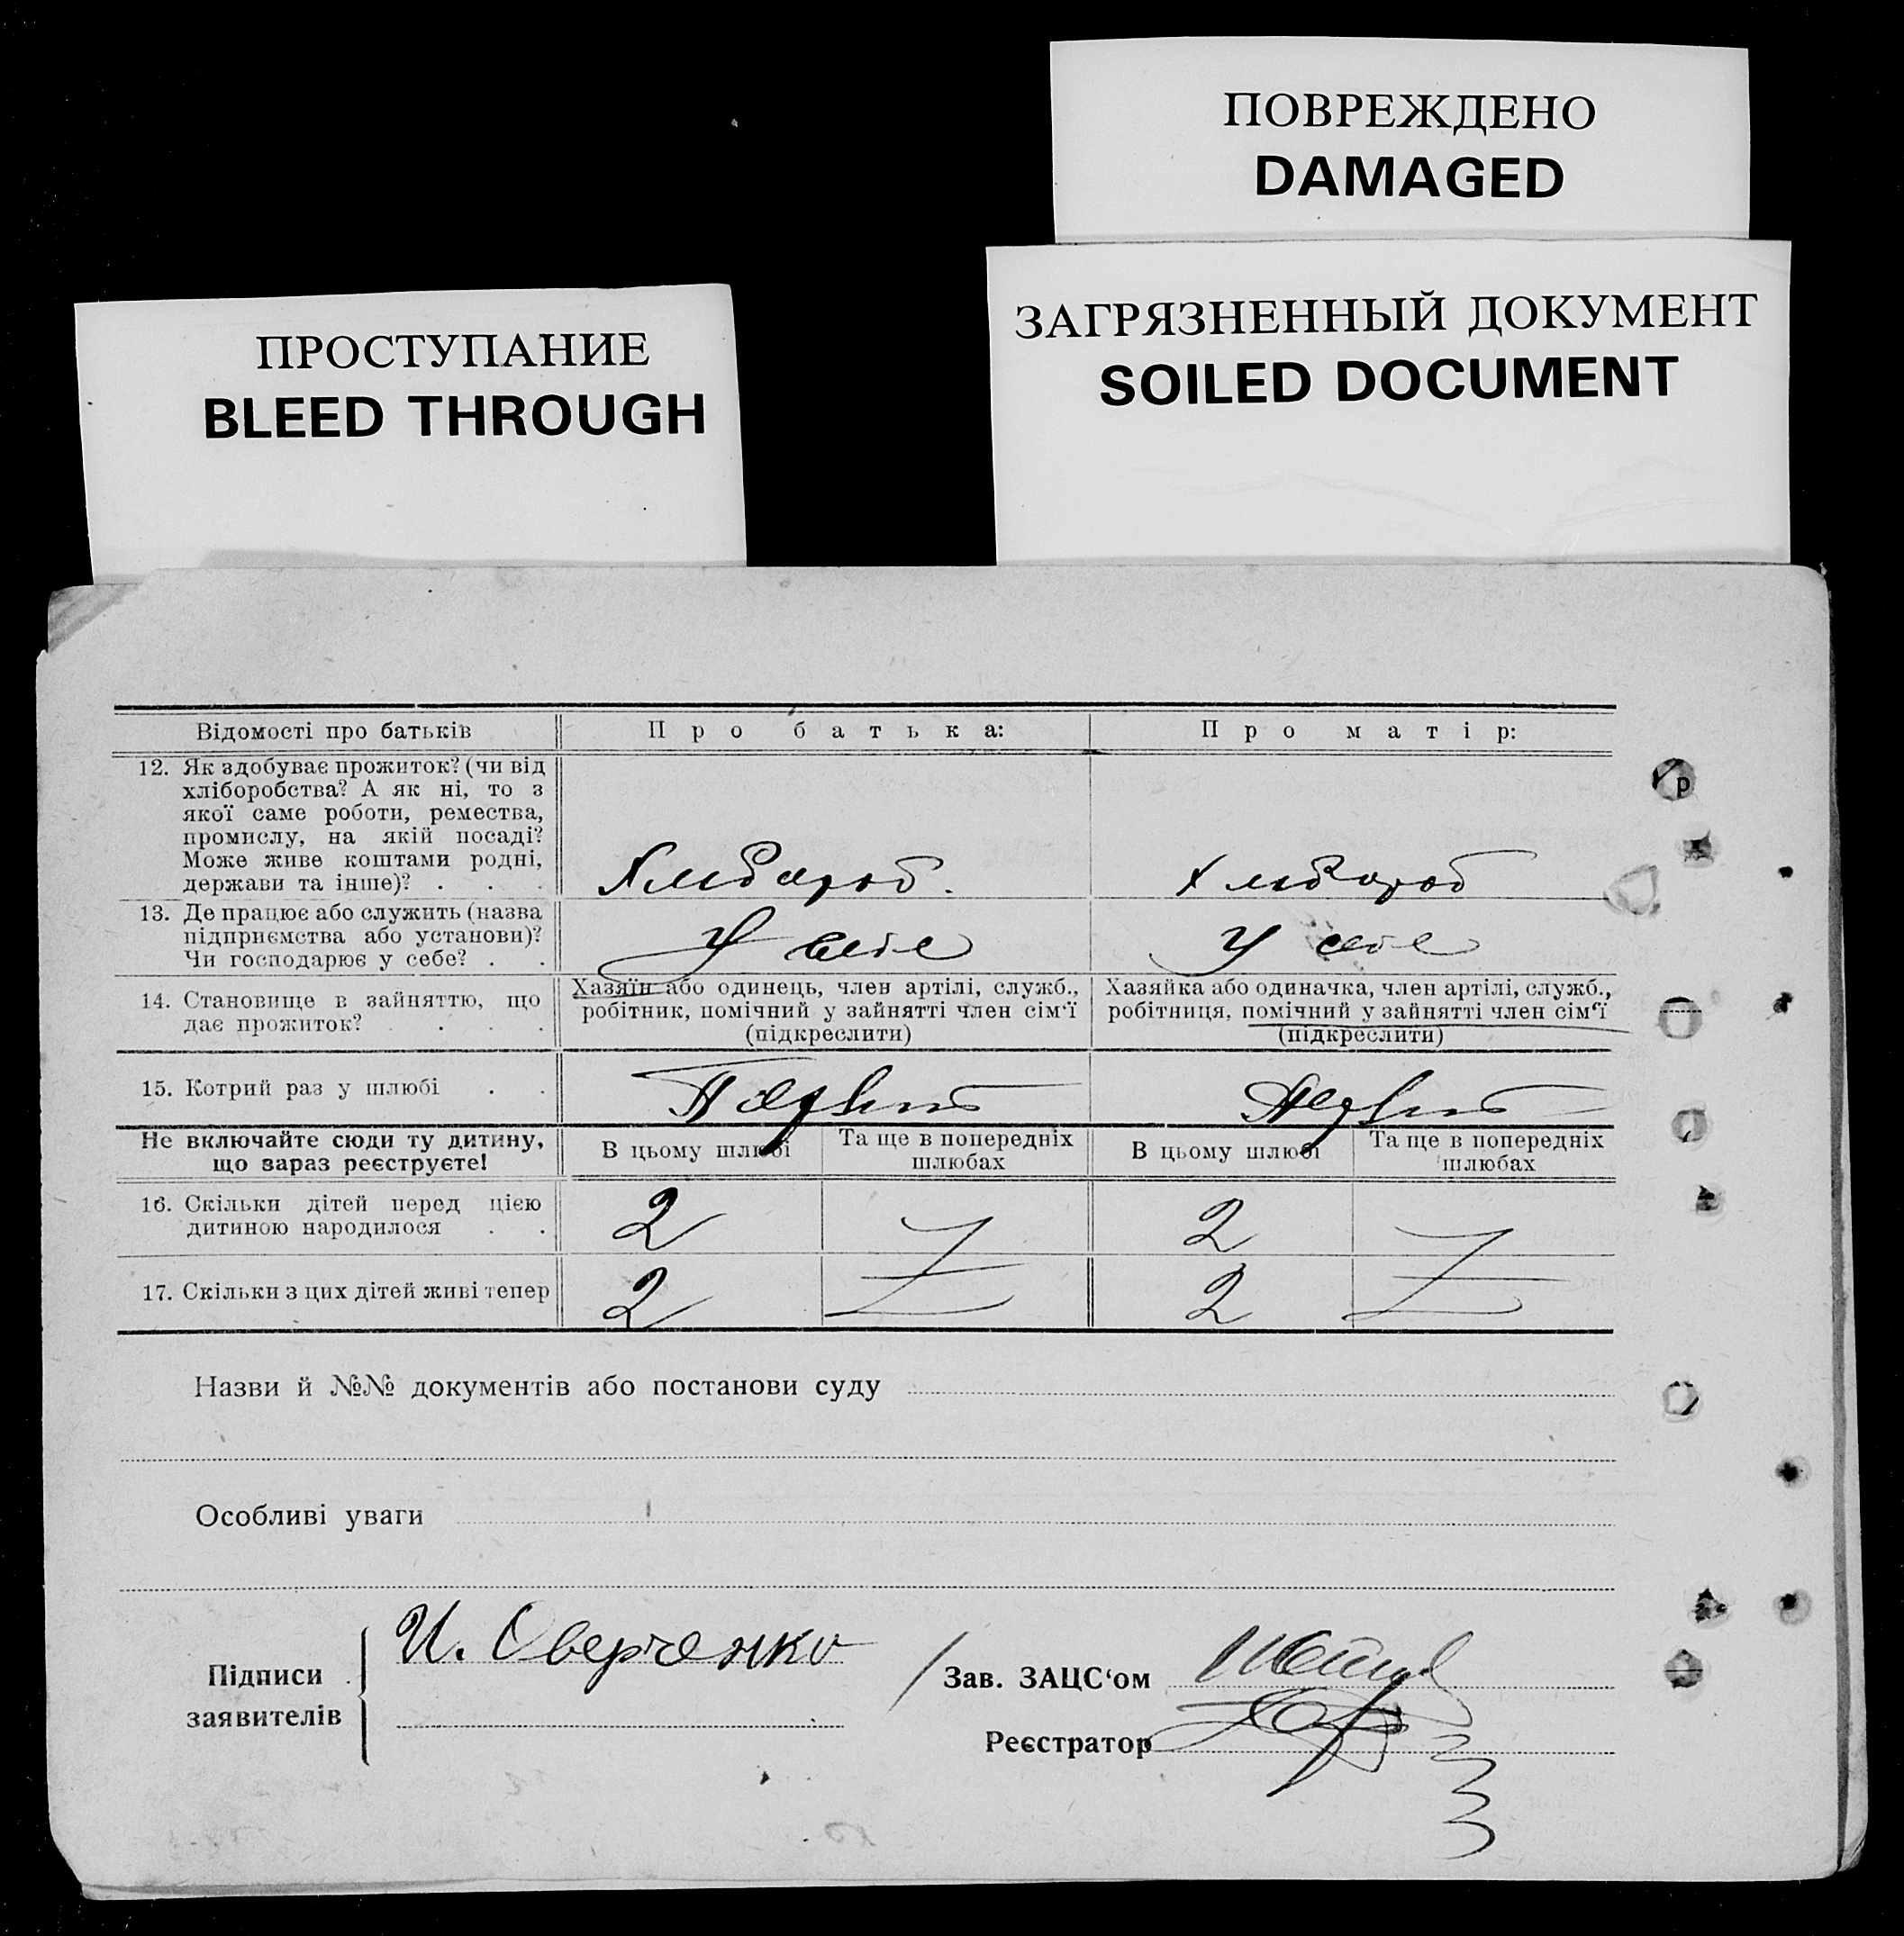 ПОВРЕЖДЕНО
DAMAGED
ЗАГРЯЗНЕННЫЙ ДОКУМЕНТ
SOILED DOCUMENT
ПРОСТУПАНИЕ
BLEED THROUGH
Відомості про батьків
Про батька:
Про матір:
12. Як здобуває прожиток? (чи від
хліборобства? А як ні, то з
якої саме роботи, ремества,
промислу, на якій посаді?
Може живе коштами родні,
держави та інше)? . . .
Хлібороб.
Хлібороб
13. Де працює або служить (назва
підприємства або установи)?
Чи господарює у себе? . .
У себе
У себе
14. Становище в зайняттю, що
дає прожиток? . . .
Хазяїн або одинець, член артілі, служб.,
робітник, помічний у зайнятті член сім'ї
(підкреслити)
Хазяйка або одиначка, член артілі, служб.,
робітниця, помічний у зайнятті член сім'ї
(підкреслити)
15. Котрий раз у шлюбі . .
Не включайте сюди ту дитину,
що зараз реєструєте!
В цьому шлюбі
Та ще в попередніх
шлюбах
В цьому шлюбі
Та ще в попередніх
шлюбах
16. Скільки дітей перед цією
дитиною народилося . .
2
2
17. Скільки з цих дітей живі тепер
2
2
Назви й №№ документів або постанови суду
Особливі уваги
Підписи
заявителів
И. Сверченко
Зав. ЗАЦС'ом
Реєстратор